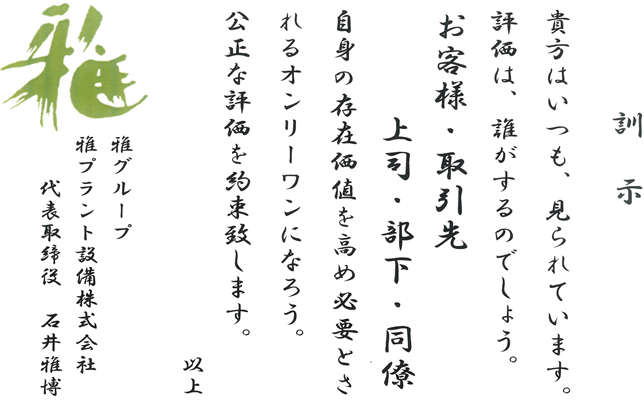 訓示
貴方はいつも、見られています。
評価は、誰がするのでしょう。
お客様・取引先
上司・部下・同僚
自身の存在価値を高め必要とさ
れるオンリーワンになろう。
公正な評価を約束致します。
以上
雅グループ
雅プラント設備株式会社
代表取締役 石井雅博
雅